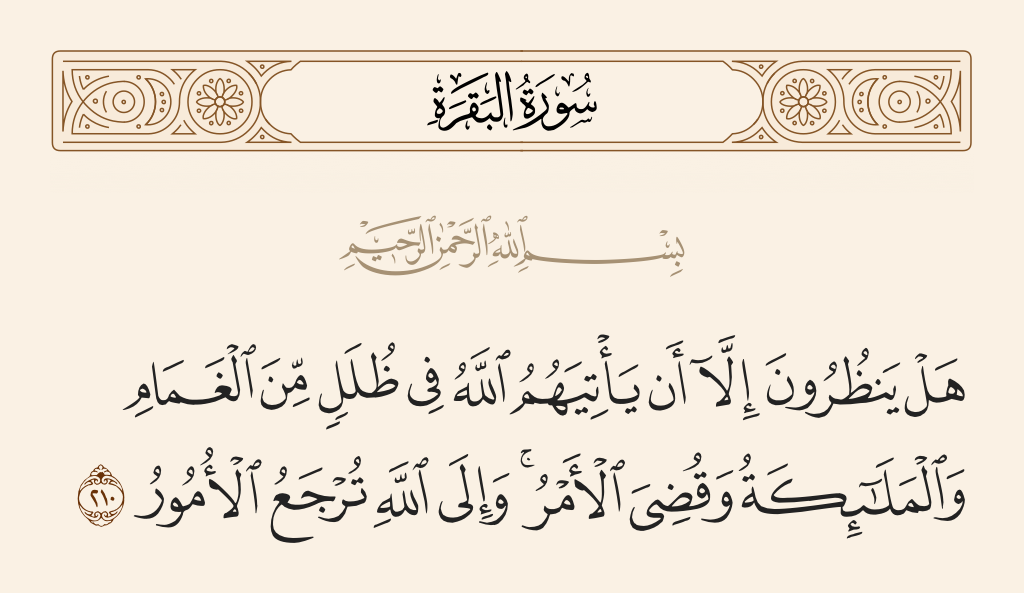 سُورَةُ البَقَرَةِ
بِسْمِ ٱللَّهِ ٱلرَّحْمَٰنِ ٱلرَّحِيمِ
هَلْ يَنظُرُونَ إِلَّآ أَن يَأْتِيَهُمُ ٱللَّهُ فِى ظُلَلٍ مِّنَ ٱلْغَمَامِ
وَٱلْمَلَـٰٓئِكَةُ وَقُضِىَ ٱلْأَمْرُ ۚ وَإِلَى ٱللَّهِ تُرْجَعُ ٱلْأُمُورُ ٢١٠